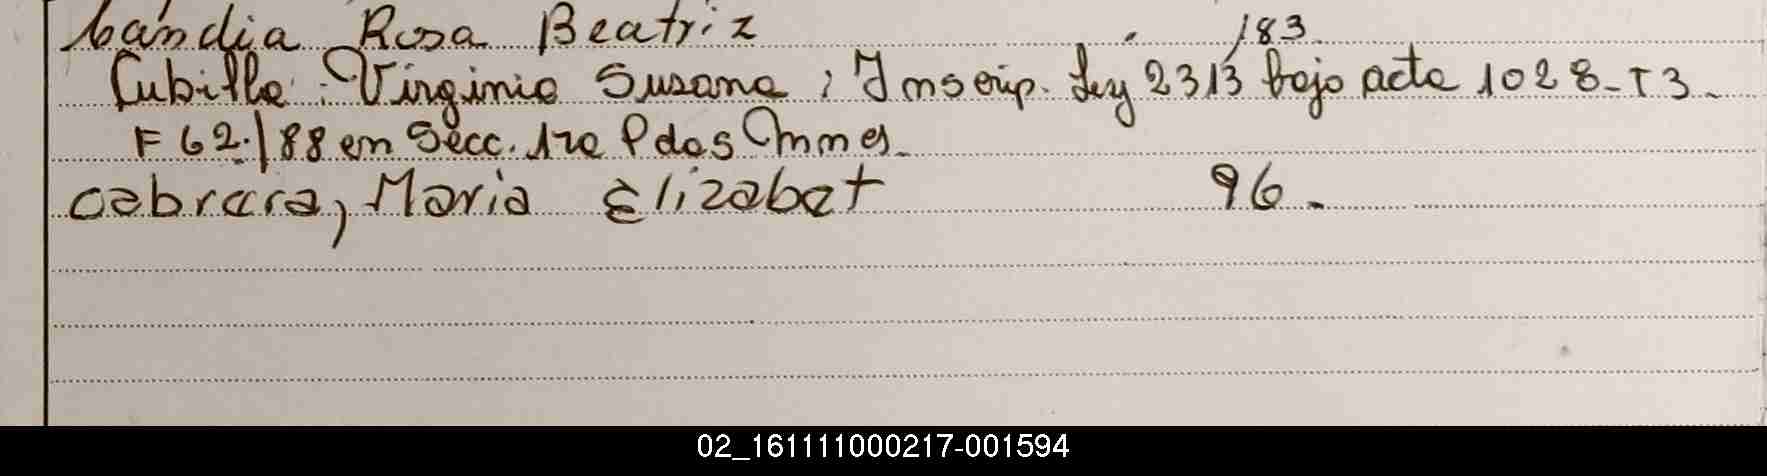 Cándia Rosa Beatriz 183
Cubilla Virginia Susana; Inscrip. Ley 2313 bajo acta 1028-T3-
F62./88 en Secc. 1ra Pdas
Cabrera, Maria Elizabet 96.
02_161111000217-001594